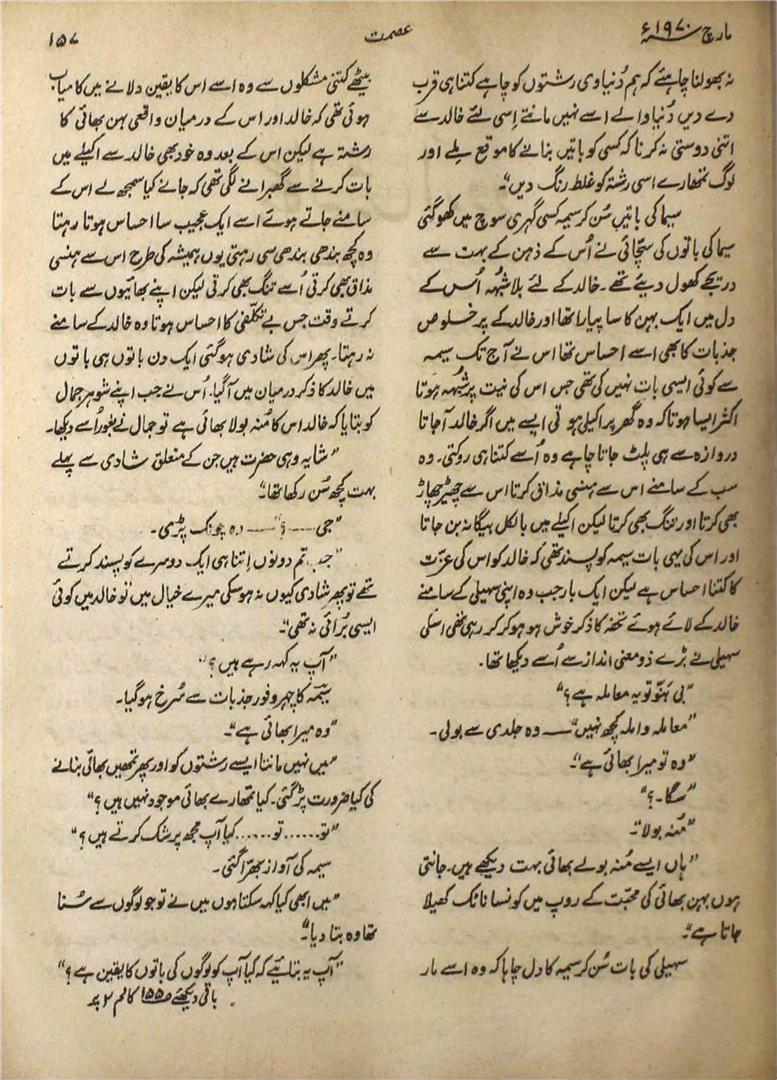 مارچ ۱۹۷۰ء
عصمت
۱۵۷
نہ بھولنا چاہئے کہ ہم دُنیاوی رشتوں کو چاہے کتنا ہی قرب
دے دیں دُنیا والے اسے نہیں مانتے اِسی لئے خالد سے
اتنی دوستی نہ کرنا کہ کسی کو باتیں بنانے کا موقع ملے اور
لوگ تمھارے اسی رشتہ کو غلط رنگ دیں"۔
سیما کی باتیں سُن کر سیمہ کسی گہری سوچ میں کھو گئی
سیما کی باتوں کی سچّائی نے اُس کے ذہن کے بہت سے
دریچے کھول دیئے تھے۔ خالد کے لئے بلا شبُہ اُس کے
دل میں ایک بہن کا سا پیار تھا اور خالد کے پر خلوص
جذبات کا بھی اسے احساس تھا اس نے آج تک سیمہ
سے کوئی ایسی بات نہیں کی تھی جس اس کی نیت پر شبُہ ہوتا
اکثر ایسا ہوتا کہ وہ گھر پر اکیلی ہو تی ایسے میں اگر خالد آ جاتا
دروازہ سے ہی پلٹ جاتا چاہے وہ اُسے کتنا ہی روکتی۔ وہ
سب کے سامنے اس سے ہنسی مذاق کرتا اس سے چھیڑ چھاڑ
بھی کرتا اور تنگ بھی کرتا لیکن اکیلے میں بالکل بیگانہ بن جاتا
اور اس کی یہی بات سیمہ کو پسند تھی کہ خالد کو اس کی عزّت
کا کتنا احساس ہے لیکن ایک بار جب وہ اپنی سہیلی کے سامنے
خالد کے لائے ہوئے تحفہ کا ذکر خوش ہو ہو کر کر رہی تھی اسکی
سہیلی نے بڑے ذو معنی انداز سے اُسے دیکھا تھا۔
"بی بَنّو تو یہ معاملہ ہے؟"
"معاملہ واملہ کچھ نہیں"ــــ وہ جلدی سے بولی۔
"وہ تو میرا بھائی ہے"۔
"سگا۔؟"
"مُنہ بولا"۔
"ہاں ایسے مُنہ بولے بھائی بہت دیکھے ہیں۔ جانتی
ہوں بہن بھائی کی محبّت کے روپ میں کونسا ناٹک کھیلا
جاتا ہے"۔
سہیلی کی بات سُن کر سیمہ کا دل چاہا کہ وہ اسے مار
بیٹھے کتنی مشکلوں سے وہ اسے اس کا یقین دلانے میں کامیاب
ہوئی تھی کہ خالد اور اس کے درمیان واقعی بہن بھائی کا
رشتہ ہے لیکن اس کے بعد وہ خود بھی خالد سے اکیلے میں
بات کرنے سے گھبرانے لگی تھی کہ جانے کیا سمجھ لے اس کے
سامنے جاتے ہوئے اسے ایک عجیب سا احساس ہوتا رہتا
وہ کچھ بندھی بندھی سی رہتی یوں ہمیشہ کی طرح اس سے ہنسی
مذاق بھی کرتی اُسے تنگ بھی کرتی لیکن اپنے بھائیوں سے بات
کرتے وقت جس بے تکلّفی کا احساس ہوتا وہ خالد کے سامنے
نہ رہتا۔ پھر اس کی شادی ہو گئی ایک دن باتوں ہی باتوں
میں خالد کا ذکر درمیان میں آ گیا۔ اُس نے جب اپنے شوہر جمال
کو بتایا کہ خالد اس کا مُنہ بولا بھائی ہے تو جمال نے بغور اُسے دیکھا۔
"شاید وہی حضرت ہیں جن کے متعلق شادی سے پہلے
بہت کچھ سُن رکھا تھا"۔
"جی ــــ ؟" ــــ وہ چونک پڑی۔
"جب تم دونوں اِتنا ہی ایک دوسرے کو پسند کرتے
تھے تو پھر شادی کیوں نہ ہو سکی میرے خیال میں تو خالد میں کوئی
ایسی بُرائی نہ تھی"۔
"آپ یہ کہہ رہے ہیں؟"
سیمہ کا چہرہ وفور جذبات سے سُرخ ہو گیا۔
"وہ میرا بھائی ہے"۔
"میں نہیں مانتا ایسے رشتوں کو اور پھر تمھیں بھائی بنانے
کی کیا ضرورت پڑ گئی۔ کیا تمھارے بھائی موجود نہیں ہیں؟"
"تو...... تو...... کیا آپ مجھ پر شک کرتے ہیں؟"
سیمہ کی آواز بھرّا گئی۔
"میں ابھی کیا کہہ سکتا ہوں میں نے تو جو لوگوں سے سُنا
تھا وہ بتا دیا"۔
"آپ یہ بتائیے کہ کیا آپ کو لوگوں کی باتوں کا یقین ہے؟"
باقی دیکھئے ص۱۵۵ کالم ۲ پر